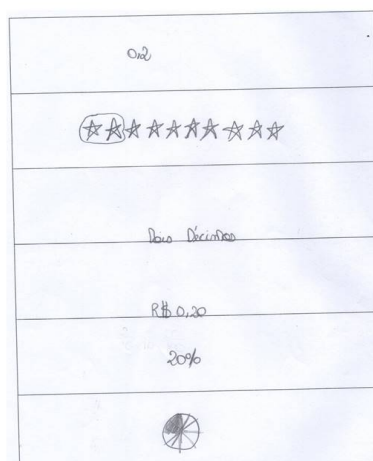 0,2
Dois Décimos
R$ 0,20
20%